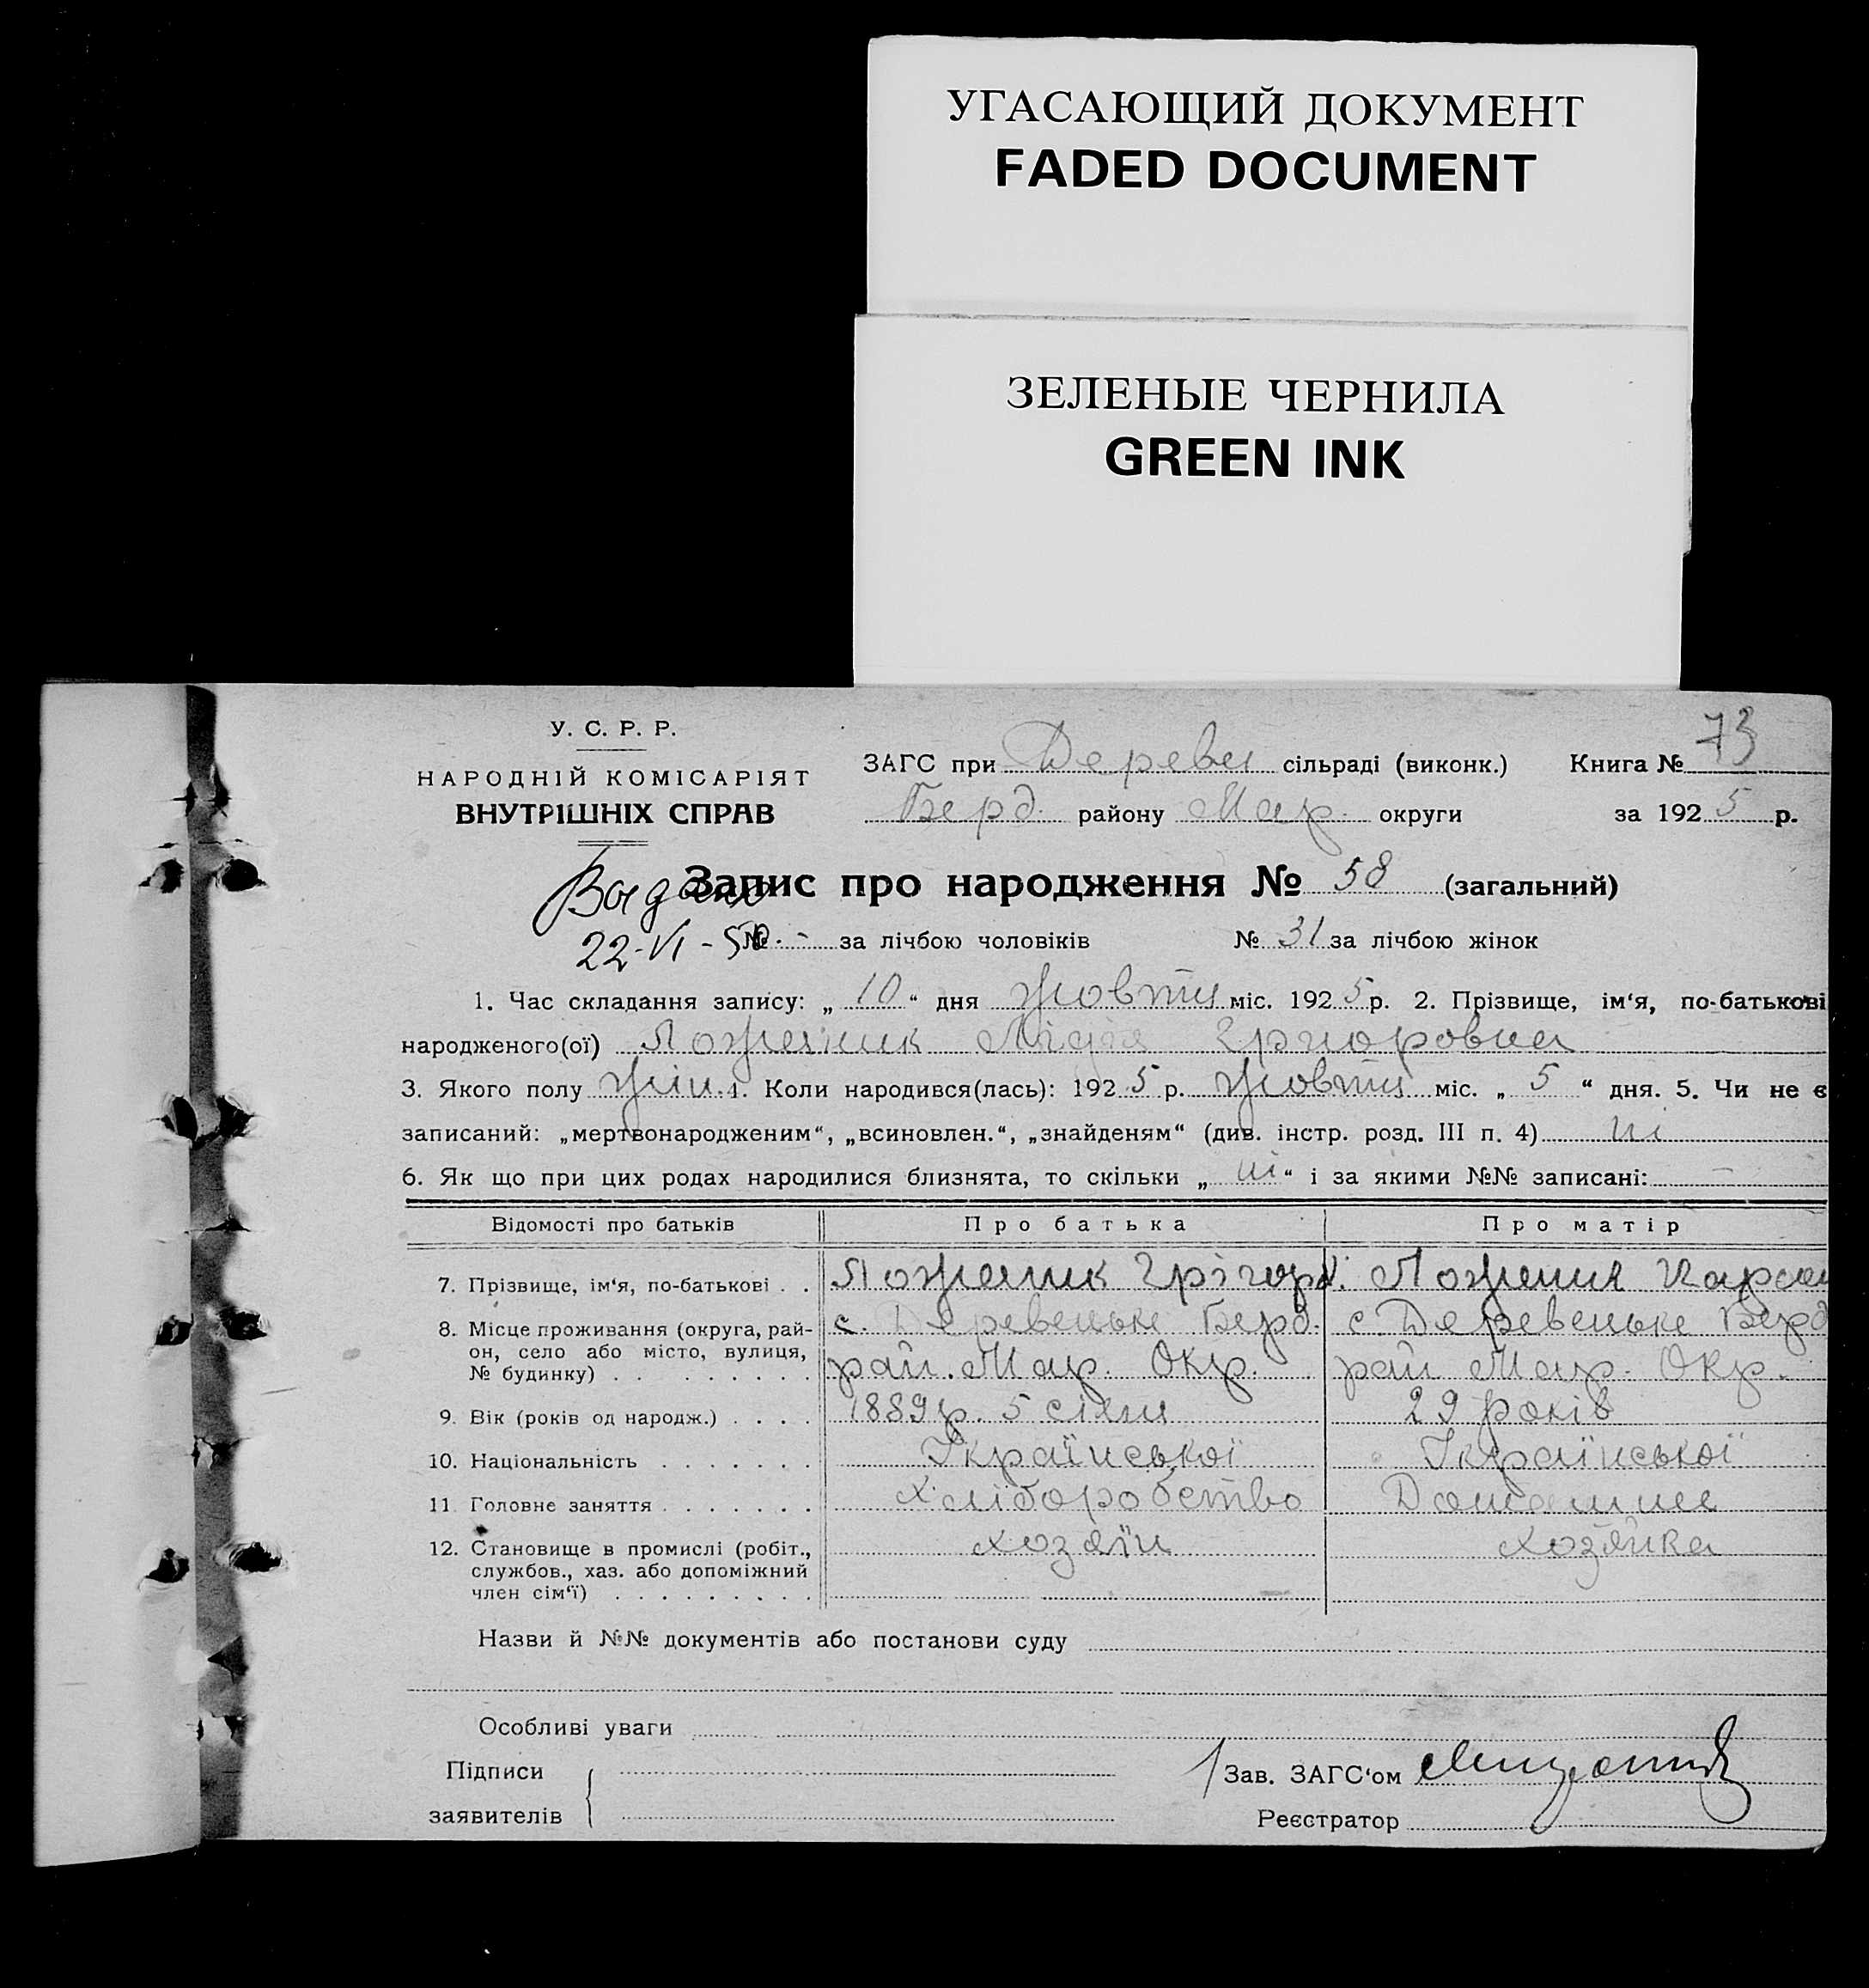 УГАСАЮЩИЙ ДОКУМЕНТ
FADED DOCUMENT
ЗЕЛЕНЫЕ ЧЕРНИЛА
GREEN INK
У. С. Р. Р.
НАРОДНІЙ КОМІСАРІЯТ
ВНУТРІШНІХ СПРАВ
ЗАГС при Деревен сільраді (виконк.) Книга № 73
Берд. району Мар. округи за 1925 р.
Запис про народження № 58 (загальний)
22-VI-50
№ - за лічбою чоловіків № 31 за лічбою жінок
1. Час складання запису: „ 10 “ дня жовтня міс. 1925 р. 2. Прізвище, ім‘я, по-батькові
народженого(ої) Ложешник Лідія Григоровна
3. Якого полу жін. 4. Коли народився(лась): 1925 р. жовтня міс. „ 5 “ дня. 5. Чи не є
записаний: „мертвонародженим“, „всиновлен.“, „знайденям“ (див. інстр. розд. III п. 4) ні
6. Як що при цих родах народилися близнята, то скільки „ ні “ і за якими №№ записані: —
Відомості про батьків Про батька Про матір
7. Прізвище, ім‘я, по-батькові . . Грігорі.
8. Місце проживання (округа, рай- с. Деревеньке Берд. с. Деревеньке Берд
он, село або місто, вулиця, рай. Мар. Окр. рай Мар. Окр.
№ будинку) . . . . . . . .
9. Вік (років од народж.) . . . . 1889 р. 5 січня 29 років
10. Національність . . . . . . . Української Української
11 Головне заняття . . . . . . . Хліборобство Домашнє
12. Становище в промислі (робіт., хозяїн хозяйка
службов., хаз. або допоміжний
член сім‘ї) . . . . . . . . .
Назви й №№ документів або постанови суду
Особливі уваги
Підписи
заявителів
Зав. ЗАГС‘ом
Реєстратор